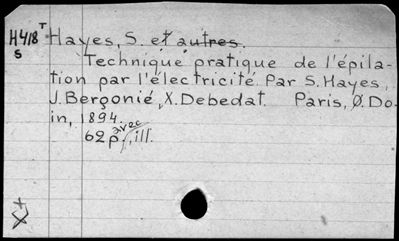 H418 T Hayes, S. et autres.
S
Technique pratique de l'épila-
tion par l'électricité. Par S. Hayes,
J. Bergonié, X. Debedat. Paris, O. Do-
in, 1894.
62 p. avec ill.